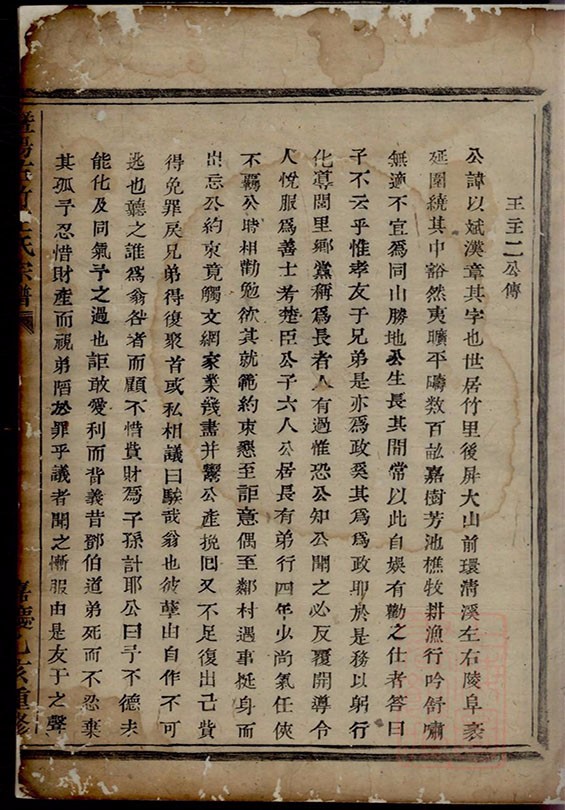 王主二公傳
公諱以斌漢章其字也世居竹里後屏大山前環清溪左右陵阜袤
延圍繞其中豁然夷曠平疇数百畝嘉樹芳池樵牧耕漁行吟舒嘯
無適不宜爲同山勝地公生長其間常以此自娱有勸之仕者答曰
子不云乎惟孝友于兄弟是亦爲政奚其爲爲政耶於是務以躬行
化導閭里鄉黨稱爲長者人有過惟恐公知公聞之必反覆開導令
人悅服爲善士若楚臣公子六人公居長有弟行四年少尚氣任俠
不羈公時相勸勉欲其就範約束懇至詎意偶至鄰村遇事挺身而
出忘公約束竟觸文網家業幾盡并鬻公產挽回又不足復出己貲
得免罪戾兄弟得復聚首或私相議曰騃哉翁也彼孽由自作不可
逃也聽之誰爲翁咎者而顧不惜貲財爲子孫計耶公曰予不德未
能化及同氣予之過也詎敢愛利而背義昔鄧伯道弟死而不忍棄
其孤予忍惜財產而視弟陷於罪乎議者聞之慚服由是友于之聲
暨陽 竹 王氏宗譜
嘉慶乙亥重修